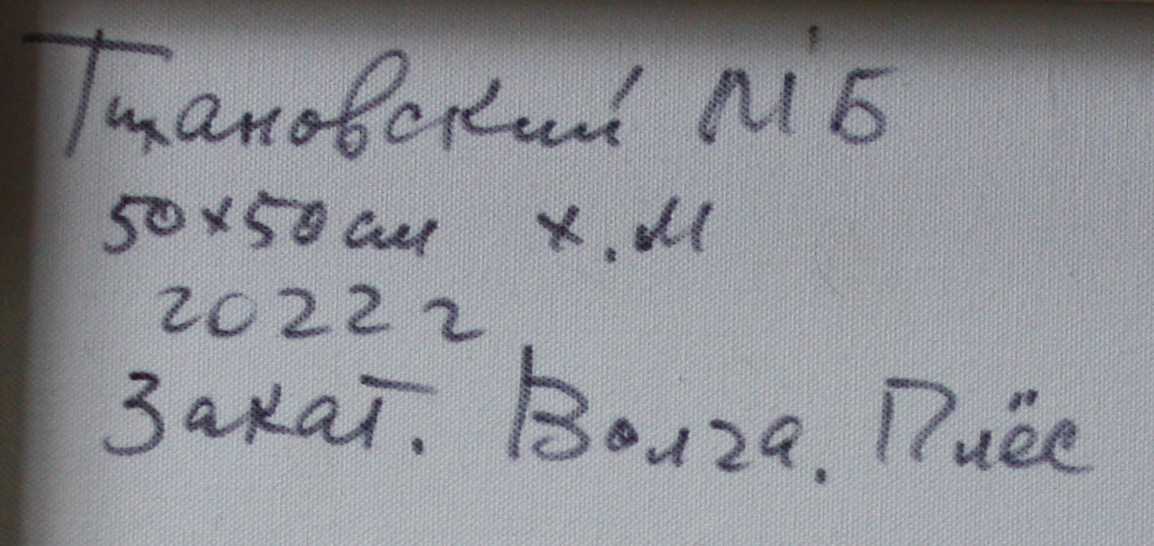 Тихановский МБ
50х50см х.м
2022г
Закат. Волга. Плёс